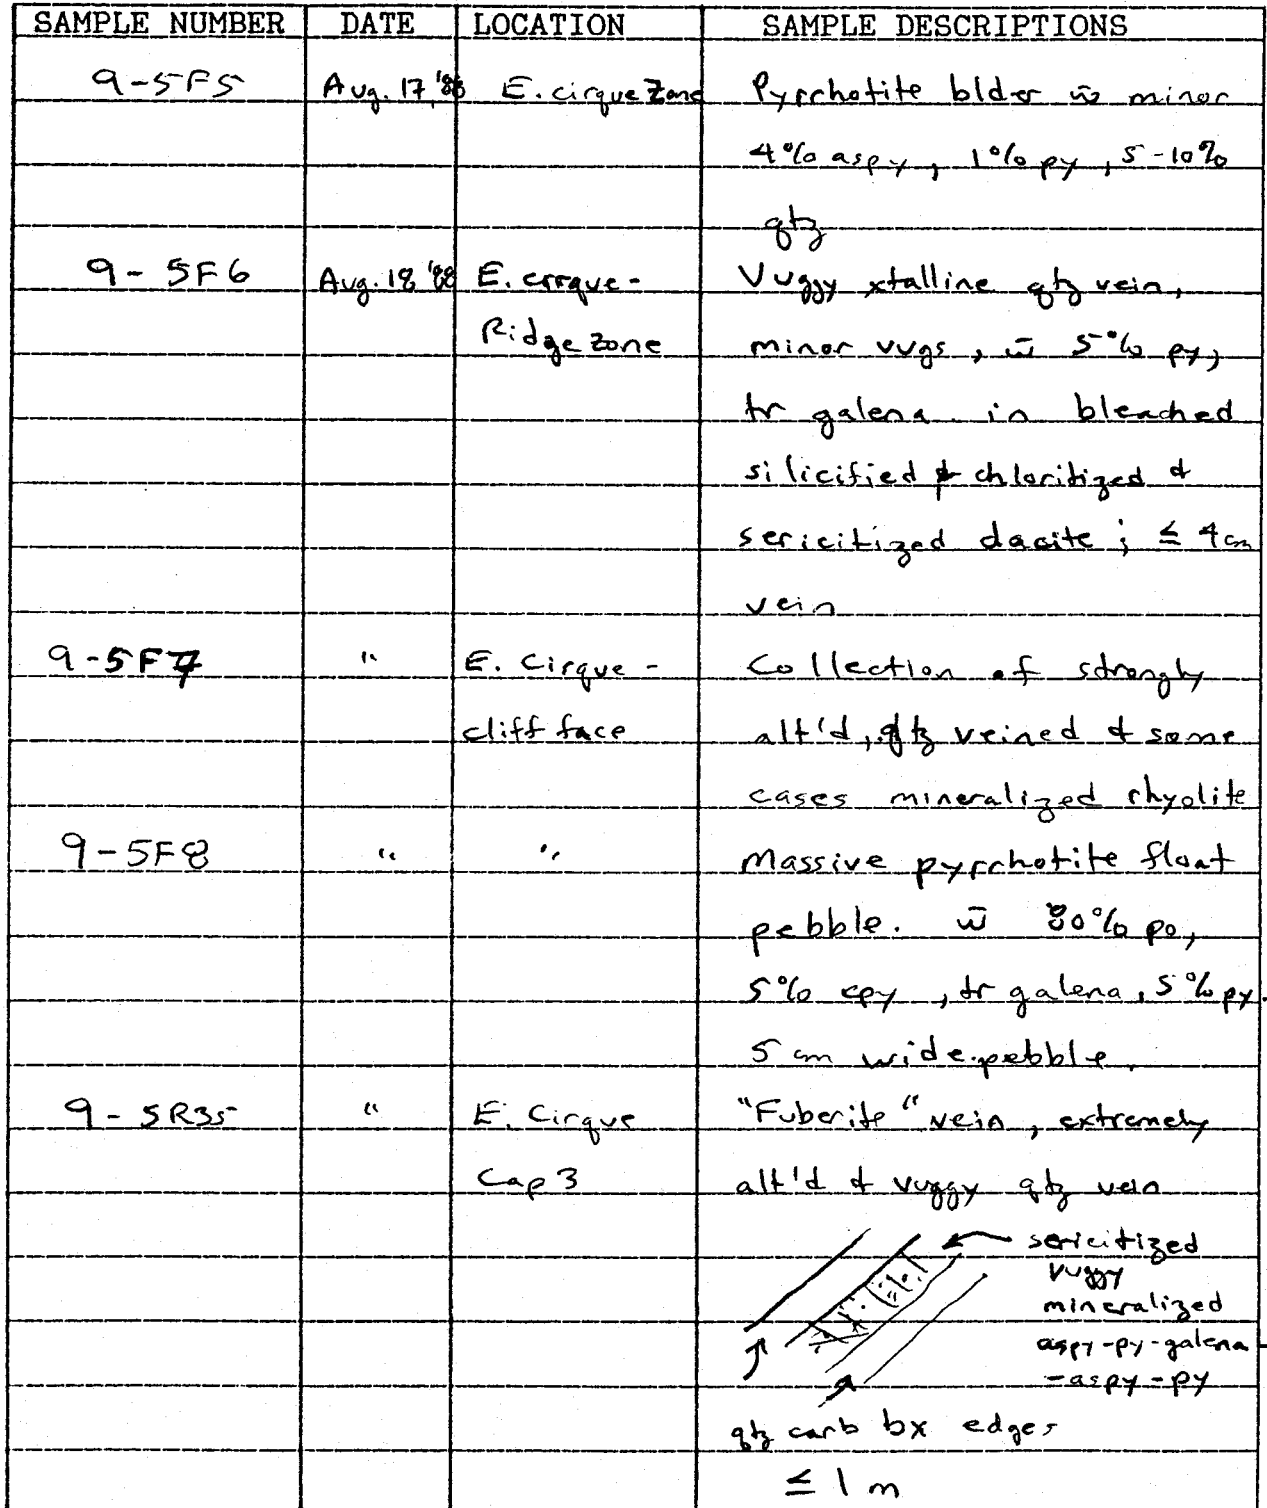 SAMPLE NUMBER DATE LOCATION SAMPLE DESCRIPTIONS
9-5F5 Aug. 17, '88 E. cirque Zone Pyrrhotite blder w̄ minor
4% aspy, 1% py, 5-10%
qtz
9-5F6 Aug. 18 '88 E. cirque - Vuggy xtalline qtz vein,
Ridge zone minor vugs, w̄ 5% py,
tr galena in bleached
silicified & chloritized &
sericitized dacite; ≤ 4cm
vein
9-5F7 " E. Cirque - Collection of strongly
cliff face alt'd, qtz veined & some
cases mineralized rhyolite
9-5F8 " " Massive pyrrhotite float
pebble. w̄ 80% po,
5% cpy, tr galena, 5% py.
5 cm wide pebble.
9-5R35 " E. Cirque "Fuberite" vein, extremely
Cap 3 alt'd & vuggy qtz vein
sericitized
vuggy
mineralized
aspy-py-galena
-aspy-py
qtz carb bx edges
≤ 1 m